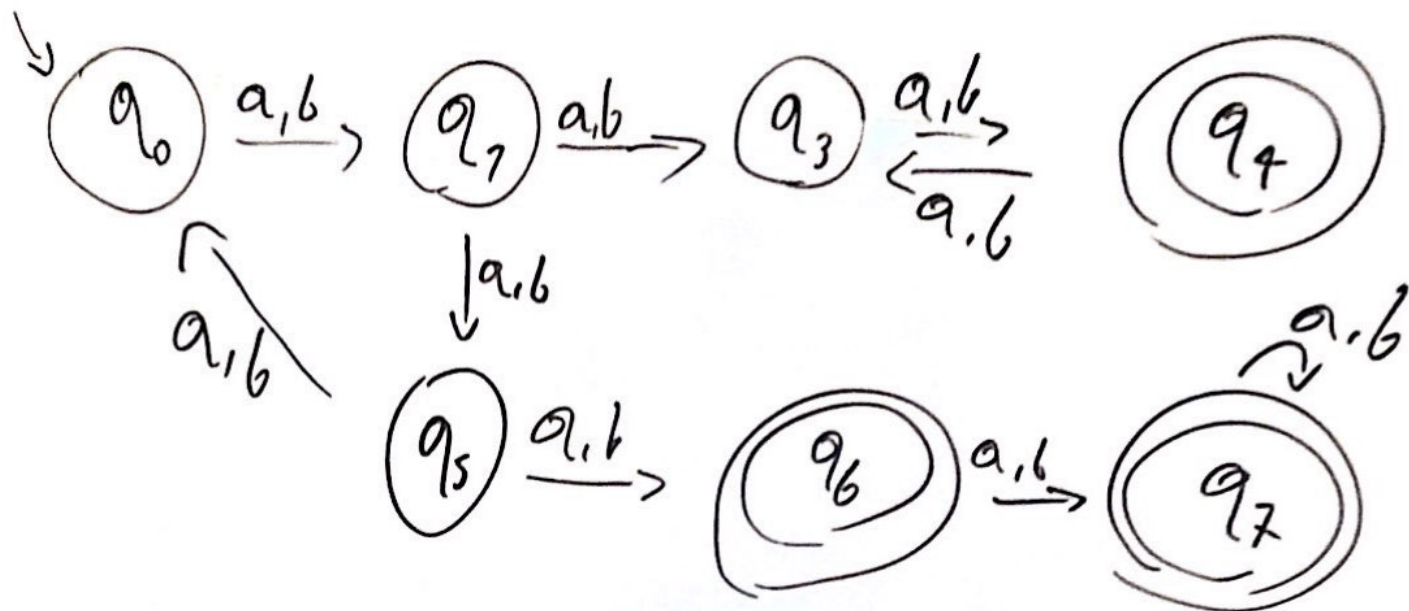 q0 a,b q1 a,b q3 a,b q4
a,b
a,b a,b
a,b
q5 a,b q6 a,b q7